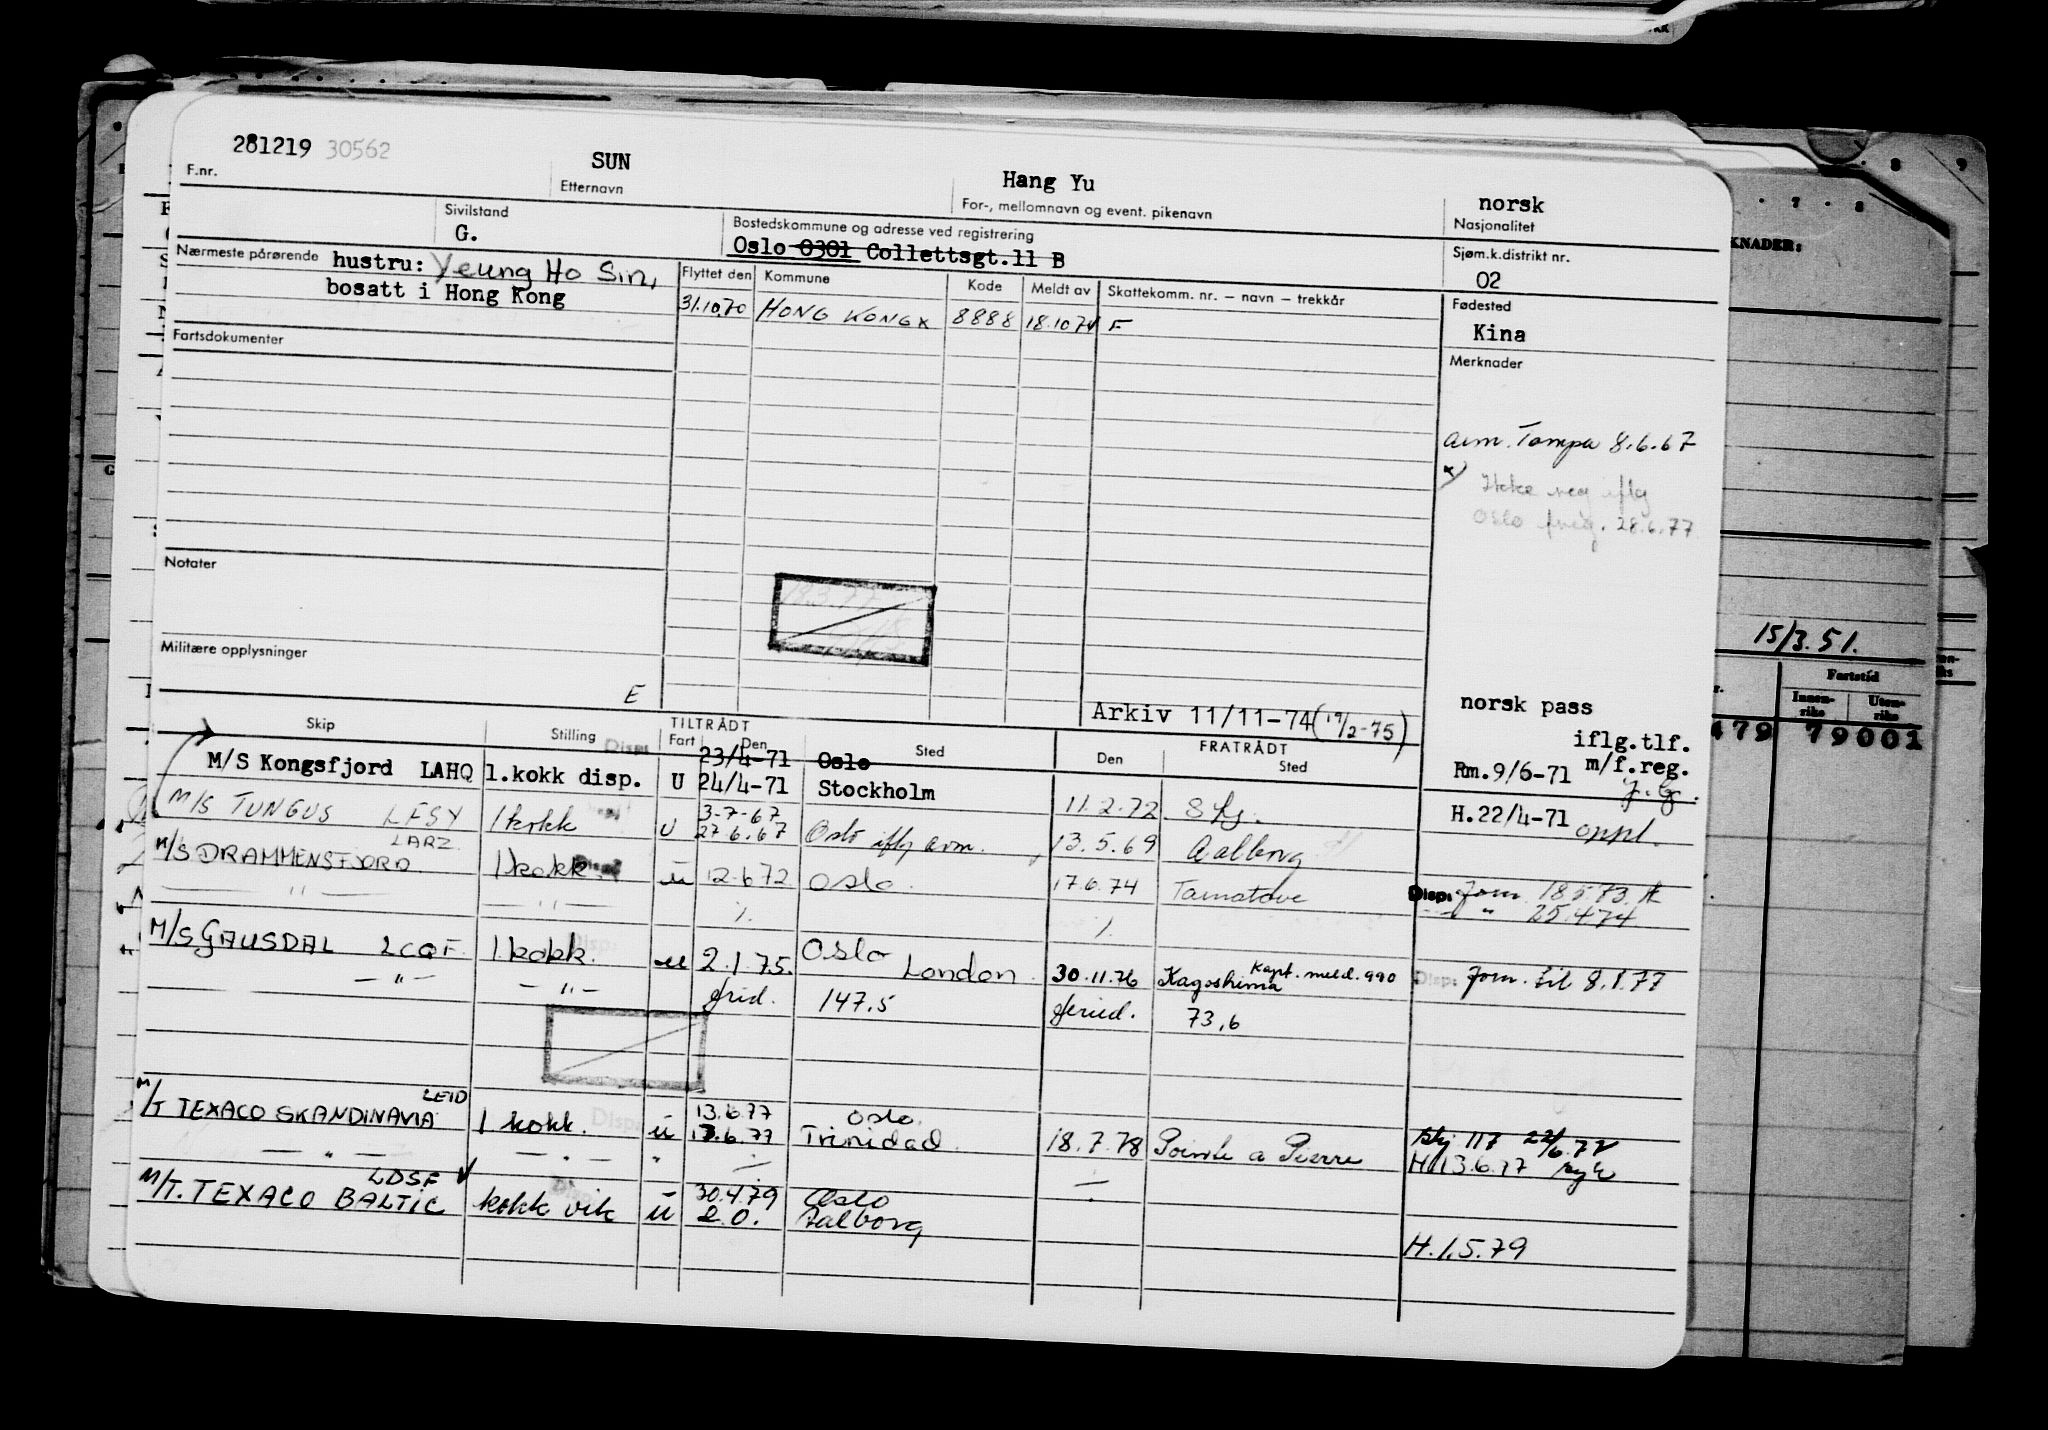 281219 30562 SUN Hang Yu norsk
F.nr. Etternavn For-, mellomnavn og event. pikenavn Nasjonalitet
Sivilstand Bostedskommune og adresse ved registrering Sjøm.k.distrikt nr.
G. Oslo 0301 Collettsgt.11 B 02
Nærmeste pårørende hustru: Yeung Ho Sin,
bosatt i Hong Kong
Flyttet den Kommune Kode Meldt av Skattekomm. nr. – navn – trekkår Fødested
31.10.70 HONG KONG x 8888 18.10.71 F Kina
Fartsdokumenter Merknader
Tampa 8.6.67
x) Ikke reg iflg
Oslo freg. 28.6.77
Notater
Militære opplysninger
E
Arkiv 11/11-74 (19/2-75)
norsk pass
iflg.tlf.
m/f.reg.
Rm.9/6-71
TILTRÅDT FRATRÅDT
Skip Stilling Fart Den Sted Den Sted
23/4-71 Oslo
M/S Kongsfjord LAHQ 1.kokk disp. U 24/4-71 Stockholm 11.2.72 H.22/4-71 oppl.
3-7-67
M/S TUNGUS LFSY 1kokk U 27.6.67 Oslo iflg 13.5.69 Aalborg
LARZ
M/S DRAMMENSFJORD 1kokk u 12.6.72 Oslo 17.6.74 Tamatave Disp: 18.5.73
— " — — " — " 25.4.74
M/S GAUSDAL LCQF 1kokk. u 2.1.75. Oslo London 30.11.76 Kagoshima Kapt. meld. 990 Disp: til 8.1.77
— " — — " — 147.5 73,6
LEID
M/T TEXACO SKANDINAVIA 1 kokk. u 13.6.77 Oslo
13.6.77 Trinidad 18.7.78 Pointe a Pierre 117
— " — — " — " H 13.6.77
LDSF
M/T. TEXACO BALTIC kokk vik u 30.4.79 Oslo
2.0. Aalborg H.1.5.79
KNADER:
15/3.51.
Fartstid
Innen-
rike
Uten-
riks
479 79001